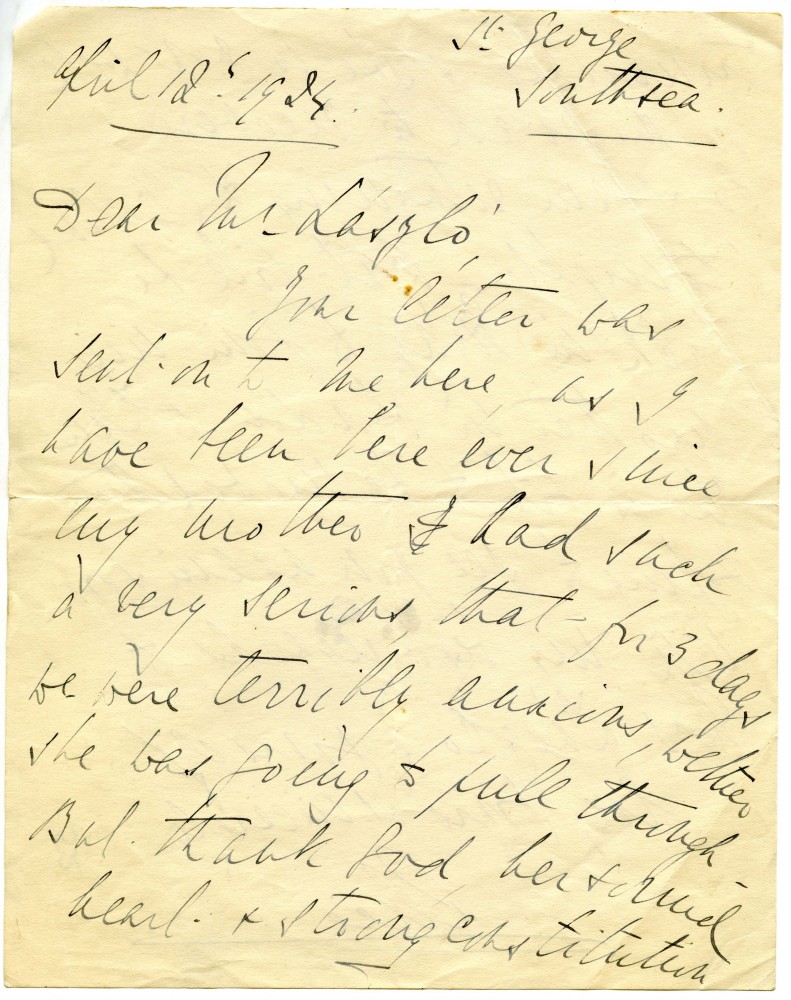 St. George
Southsea.
April 12th 1924.
Dear Mr László,
Your letter was
sent on to me here, as I
have been here ever since
my mother & had such
a very serious, that for 3 days
we were terribly anxious, wether
she was going to pull through -
But thank God, her sound
heart & strong constitution